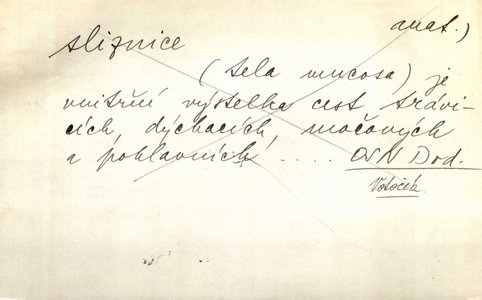 anat.)
sliznice
(tela mucosa) je
vnitřní výstelka cest trávi-
cích, dýchacích, močových
a pohlavních ..... OSN Dod.
Votoček.